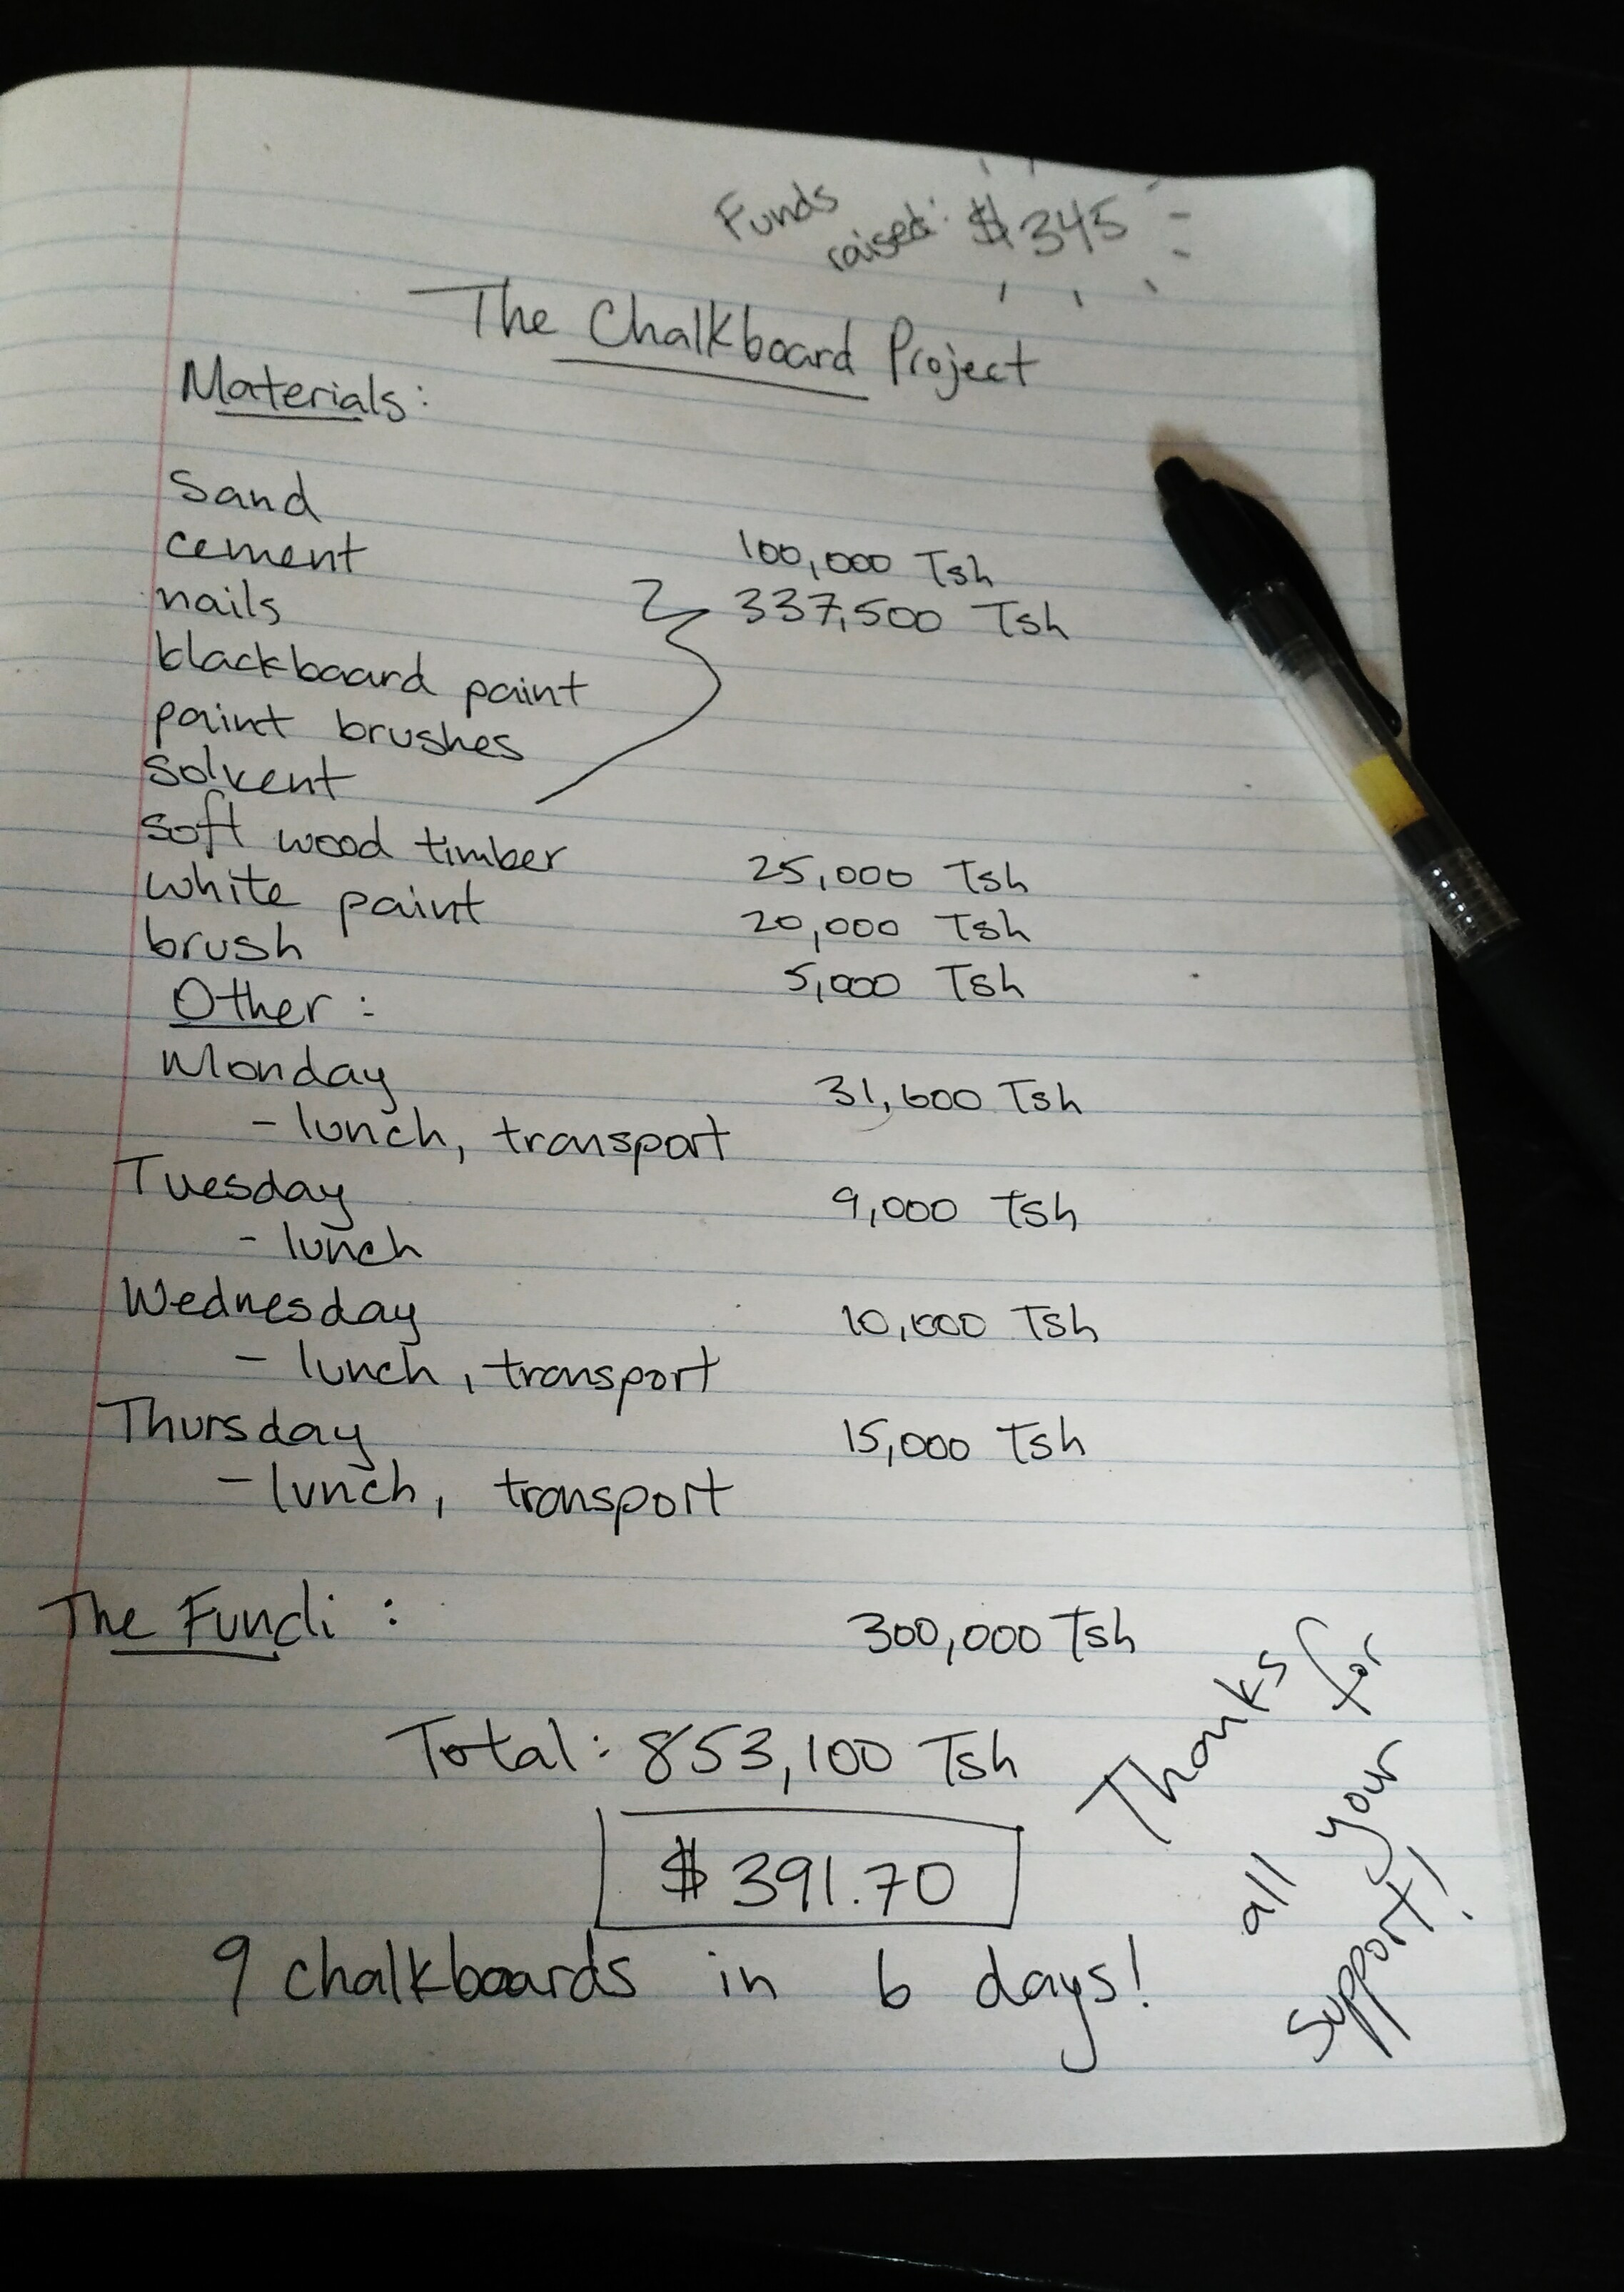 Funds
raised: $345
The Chalkboard Project
Materials:
Sand 100,000 Tsh
cement 337,500 Tsh
nails
blackboard paint
paint brushes
solvent
soft wood timber 25,000 Tsh
white paint 20,000 Tsh
brush 5,000 Tsh
Other:
Monday 31,600 Tsh
- lunch, transport
Tuesday 9,000 Tsh
- lunch
Wednesday 10,000 Tsh
- lunch, transport
Thursday 15,000 Tsh
- lunch, transport
The Fundi: 300,000 Tsh
Total: 853,100 Tsh
$391.70
9 chalkboards in 6 days!
Thanks for
all your
support!